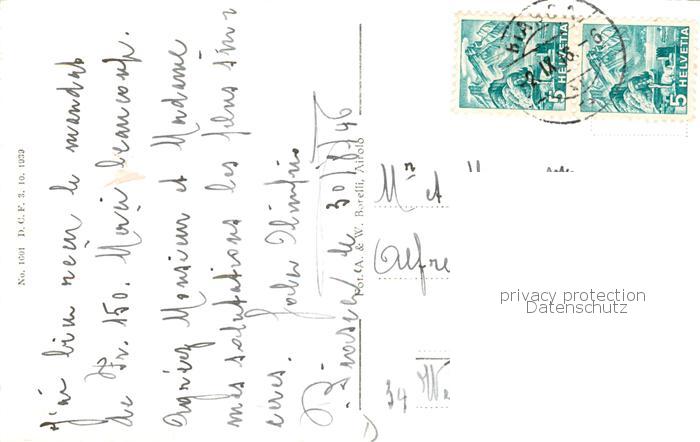 J'ai bien reçu le mandat
de Fr. 150. Merci beaucoup.
Agréez Monsieur et Madame
mes salutations les plus sin
cères.
le 30/8/46
No. 1091 D. C. F. 3. 10. 1939
Fot. A. & W. Borelli, Airolo
5 HELVETIA
5 HELVETIA
Mr et
Alfre
34 Wa
privacy protection
Datenschutz